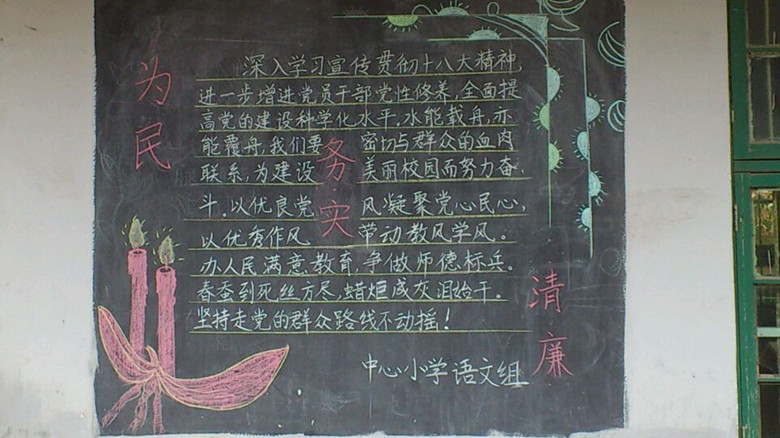 为民
务实
清廉
深入学习宣传贯彻十八大精神
进一步增进党员干部党性修养,全面提
高党的建设科学化水平,水能载舟,亦
能覆舟,我们要密切与群众的血肉
联系,为建设美丽校园而努力奋
斗,以优良党风凝聚党心民心,
以优秀作风带动教风学风。
办人民满意教育,争做师德标兵。
春蚕到死丝方尽,蜡炬成灰泪始干。
坚持走党的群众路线不动摇!
中心小学语文组